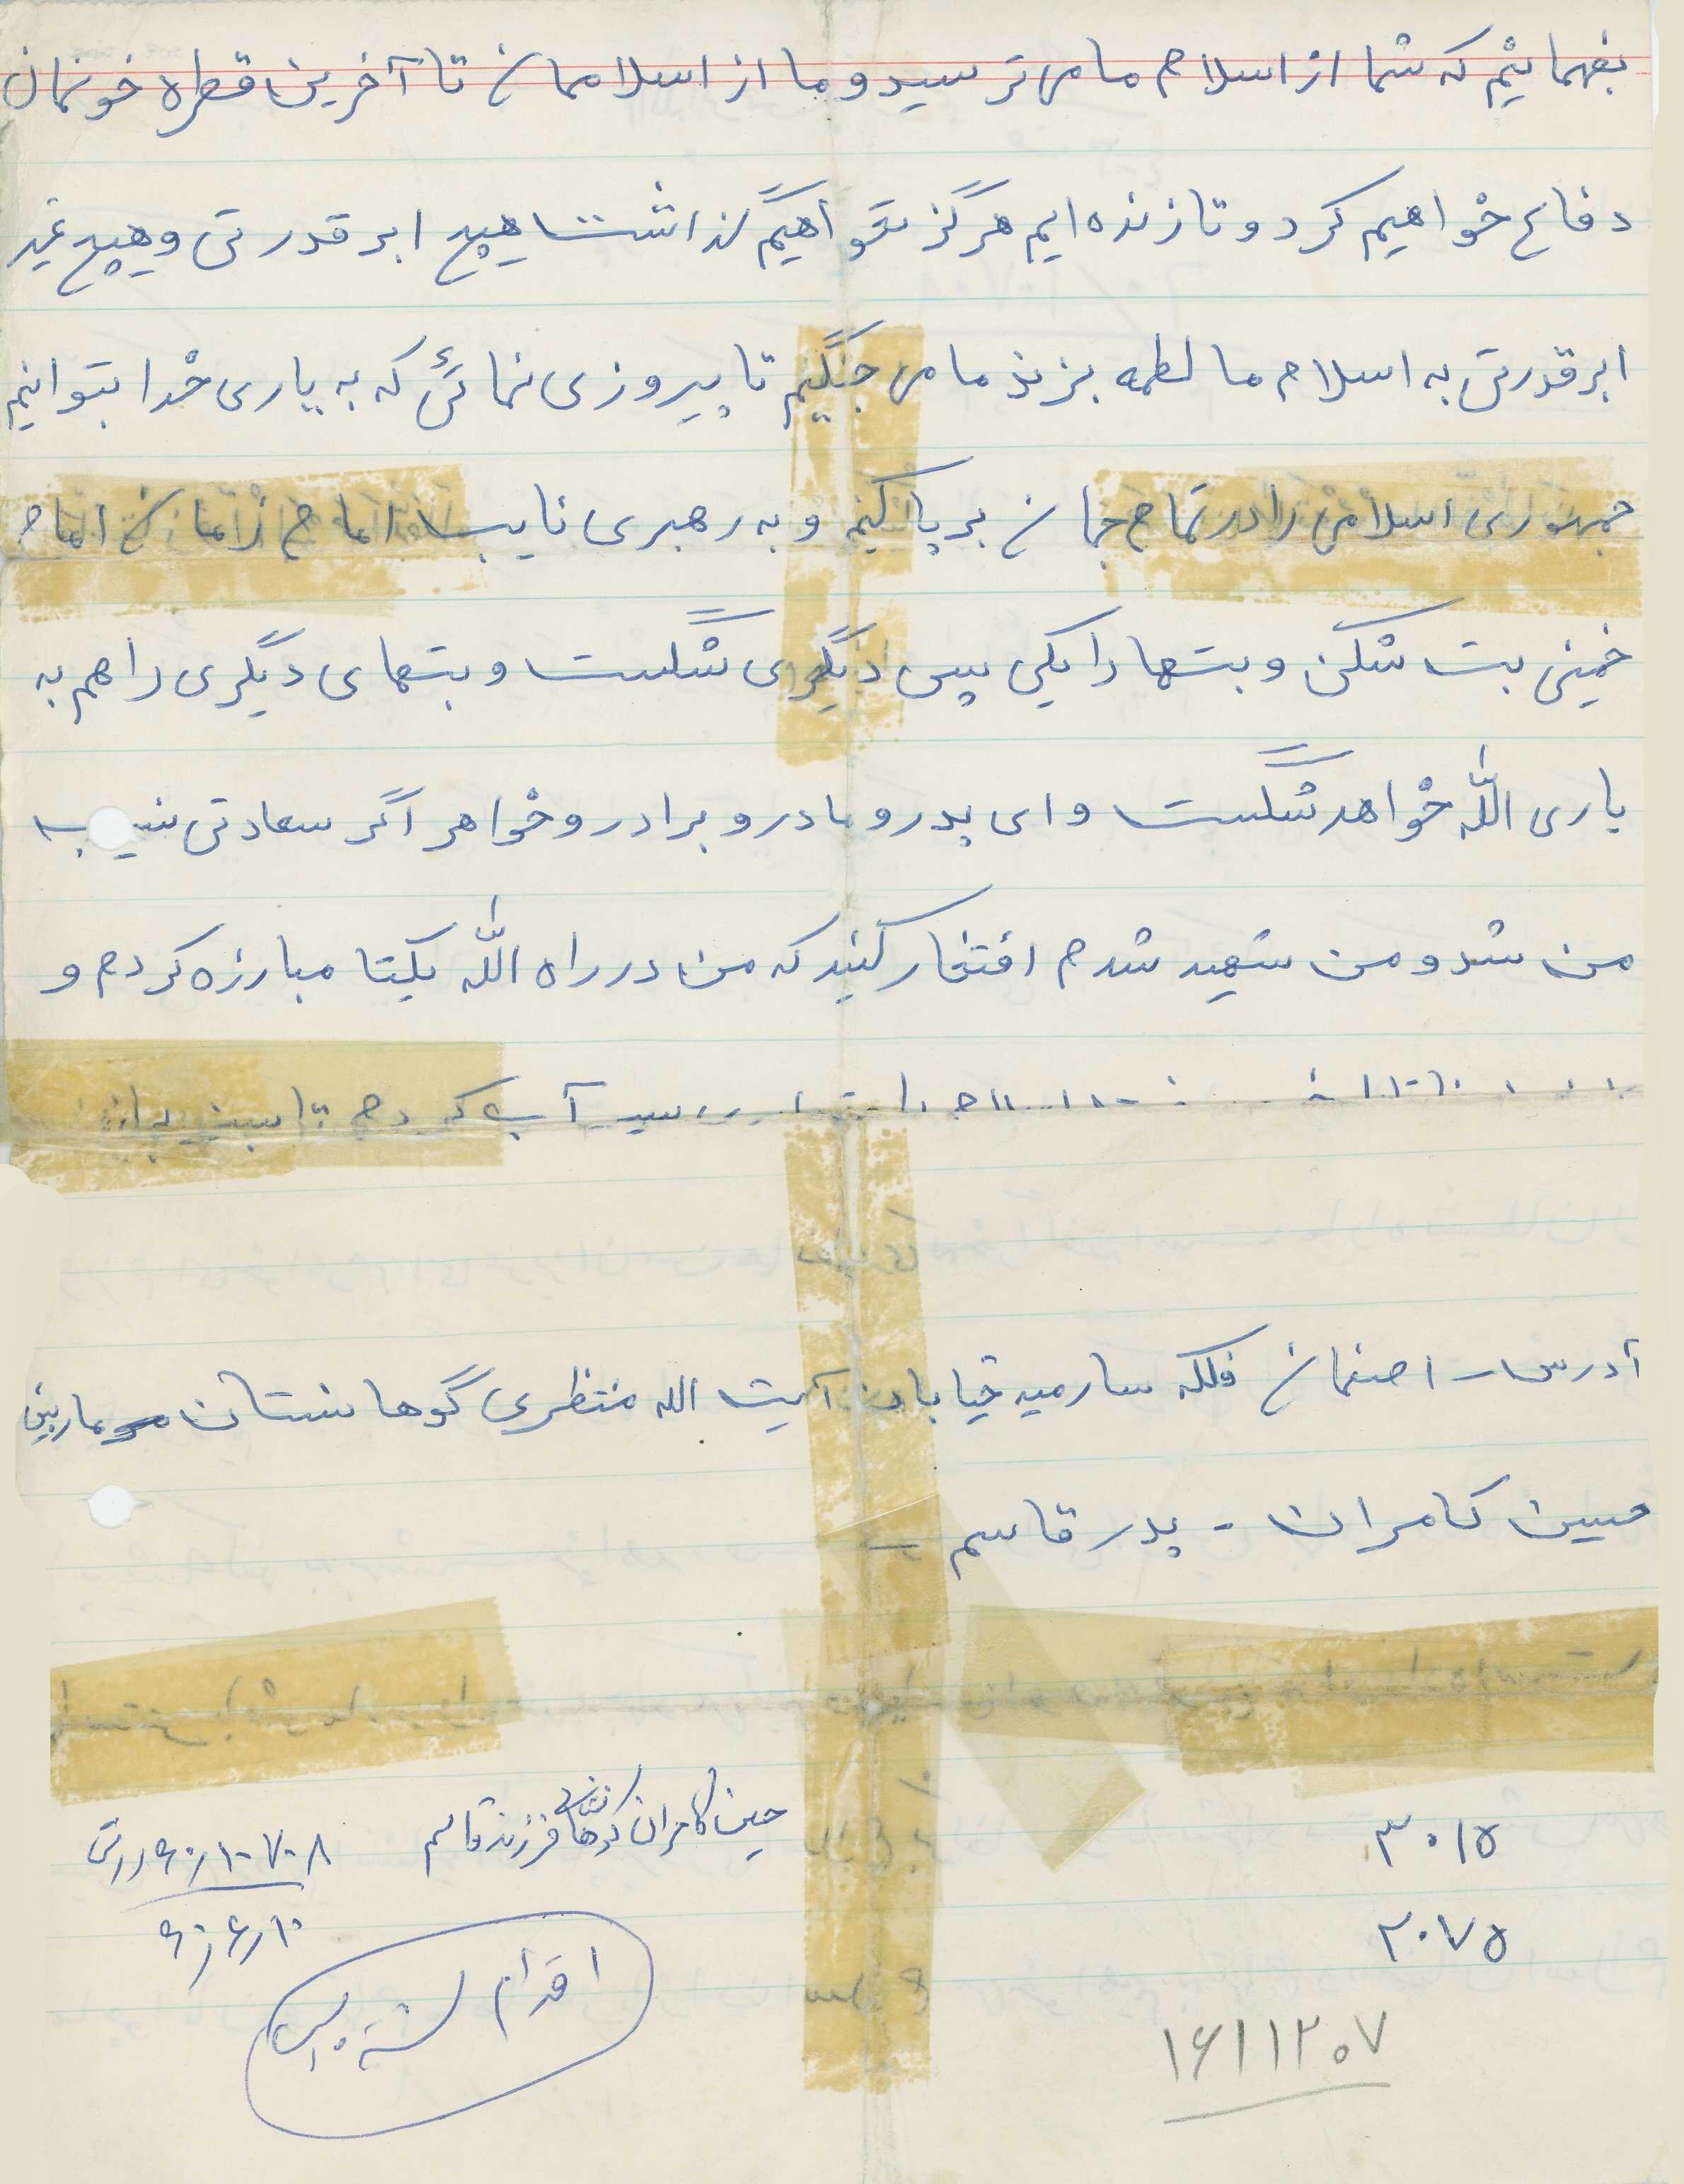 بفهمانیم که شما از اسلام ما می ترسید و ما از اسلاممان تا آخرین قطره خونمان
دفاع خواهیم کرد و تا زنده ایم هرگز نخواهیم گذاشت هیچ ابر قدرتی و هیچ غیر
ابرقدرتی به اسلام ما لطمه بزند ما می جنگیم تا پیروزی نهائی که به یاری خدا بتوانیم
جمهوری اسلامی را در تمام جهان بر پا کنیم و به رهبری نایب امام زمان امام
خمینی بت شکن و بتها را یکی پس از دیگری شگست و بتهای دیگری را هم به
یاری الله خواهد شگست و ای پدر و مادر و برادر و خواهر اگر سعادتی نصیب
من شد و من شهید شدم افتخار کنید که من در راه الله یکتا مبارزه کردم و
آب کردم تا
آدرس - اصفهان فلکه سارمیه خیابان آیت الله منتظری گوهانستان ماربین
حسین کامران - پدر قاسم -
حسین کامران فرزند قاسم
۳۰۱۵
۲۰۷۵
۶۰٫۶٫۱۰
اقدام
۱۶۱۱۲۰۷